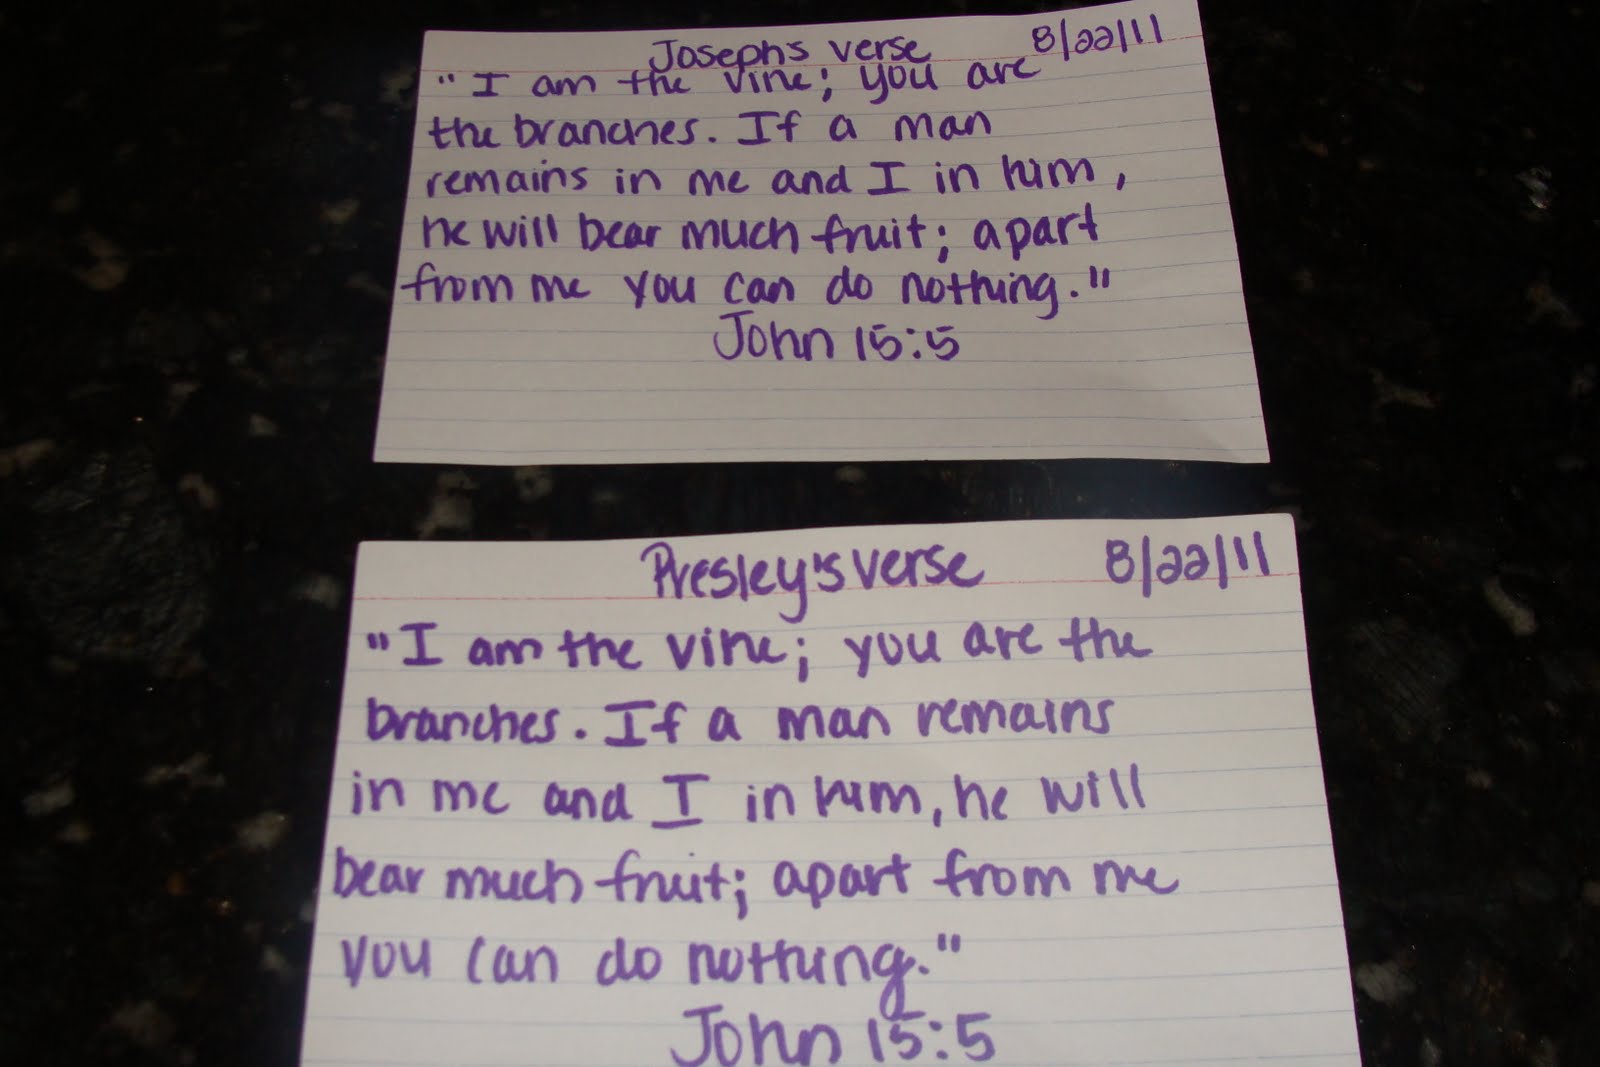 Josephs verse 8/22/11
"I am the vine; you are
the branches. If a man
remains in me and I in him,
he will bear much fruit; apart
from me you can do nothing."
John 15:5
Presley's verse 8/22/11
"I am the vine; you are the
branches. If a man remains
in me and I in him, he will
bear much fruit; apart from me
you can do nothing."
John 15:5